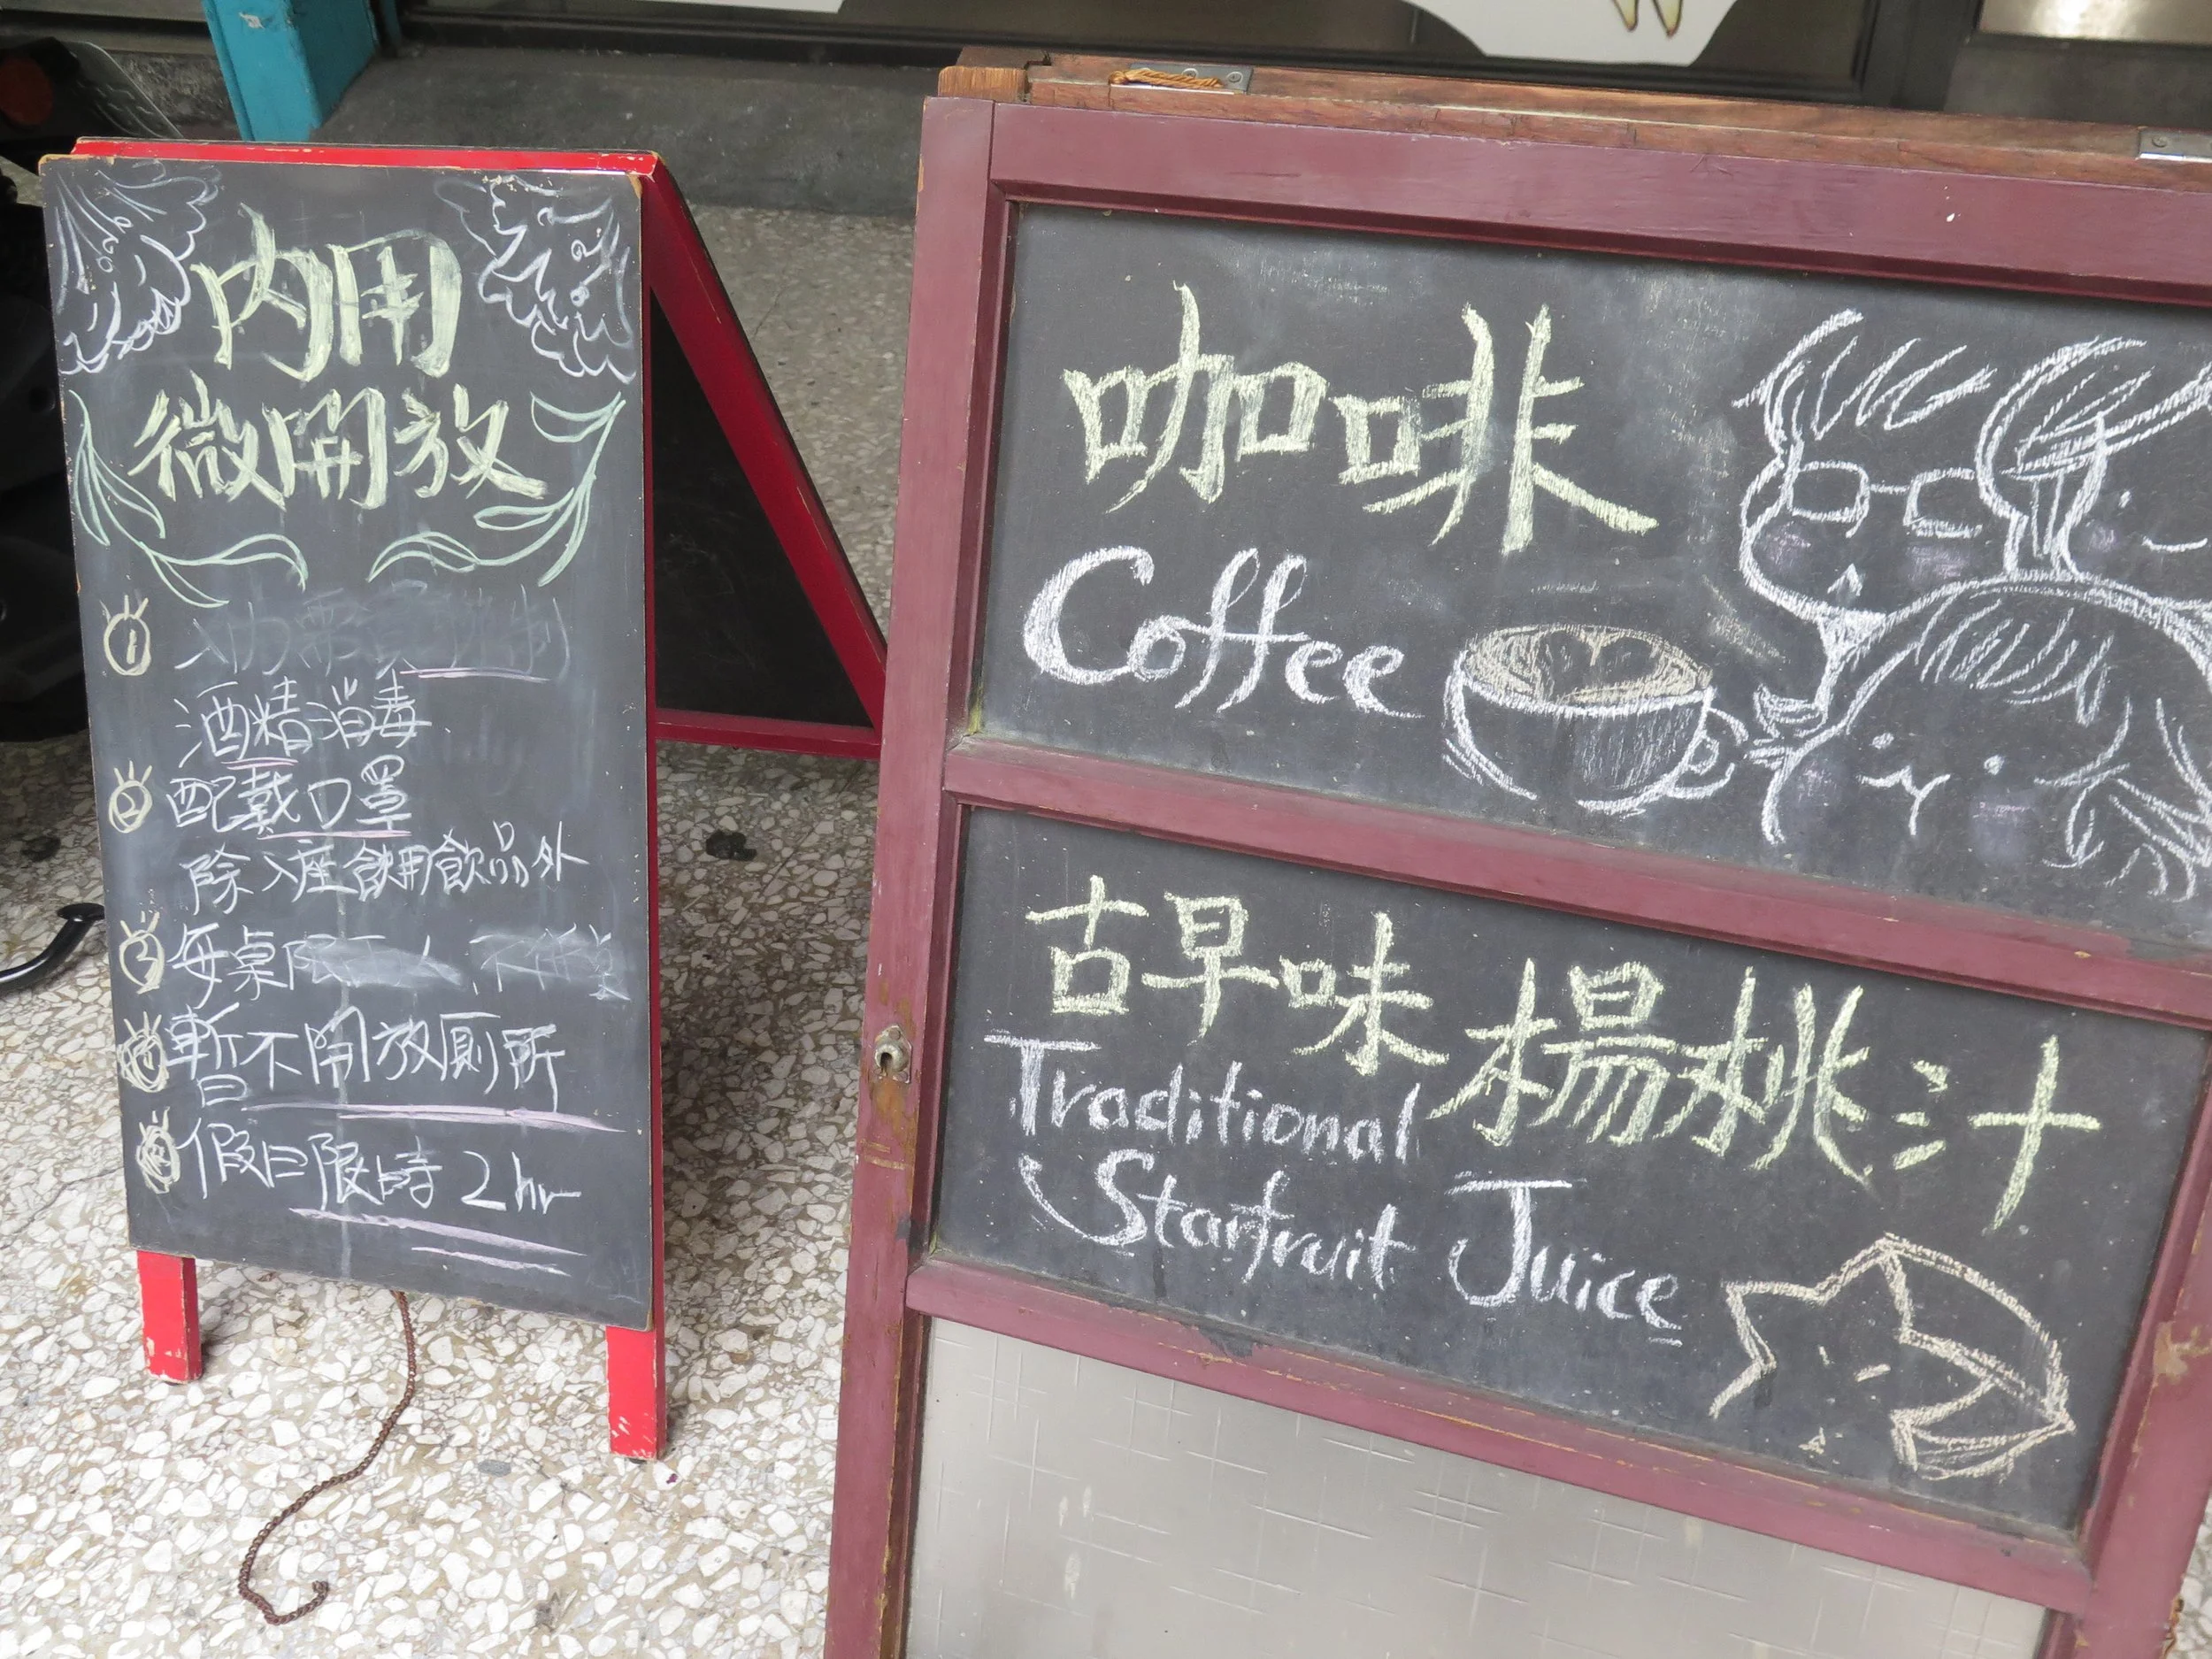 內用
微開放
1
酒精消毒
2 配戴口罩
除入座飲用飲品外
3 每桌限
暫不開放廁所
假日限時 2hr
咖啡
Coffee
古早味 楊桃汁
Traditional
Starfruit Juice